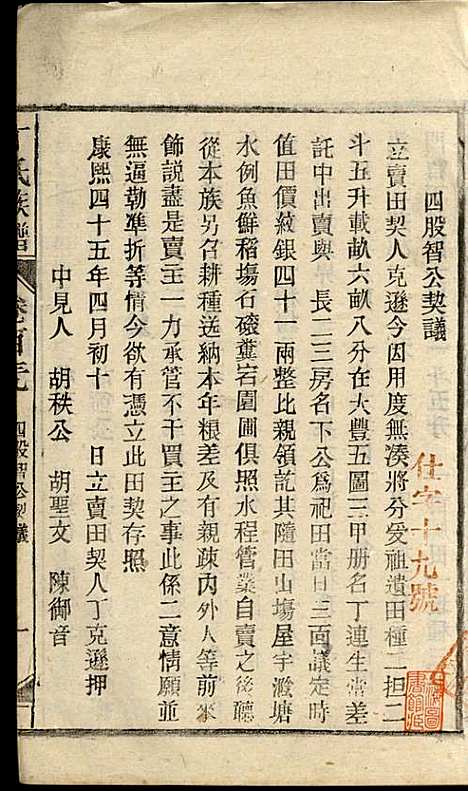 四股智公契議
立賣田契人克遜今因用度無湊將分受祖遺田種二担二
斗五升載畝六畝八分在大豐五圖三甲册名丁連生當差
託中出賣與 長二三房名下公爲祀田當日三面議定時
值田價紋銀四十一兩整比親領訖其隨田山塲屋宇濺塘
水例魚鮮稻塲石磙糞宕園圃俱照水程管業自賣之後聽
從本族另召耕種送納本年糧差及有親疎内外人等前來
飾説盡是賣主一力承管不干買主之事此係二意情願並
無逼勒準折等情今欲有憑立此田契存照
康熙四十五年四月初十 日立賣田契人丁克遜押
中見人 胡秩公 胡聖文 陳御音
仕字十九號
丁氏族譜
四股智公契議
一